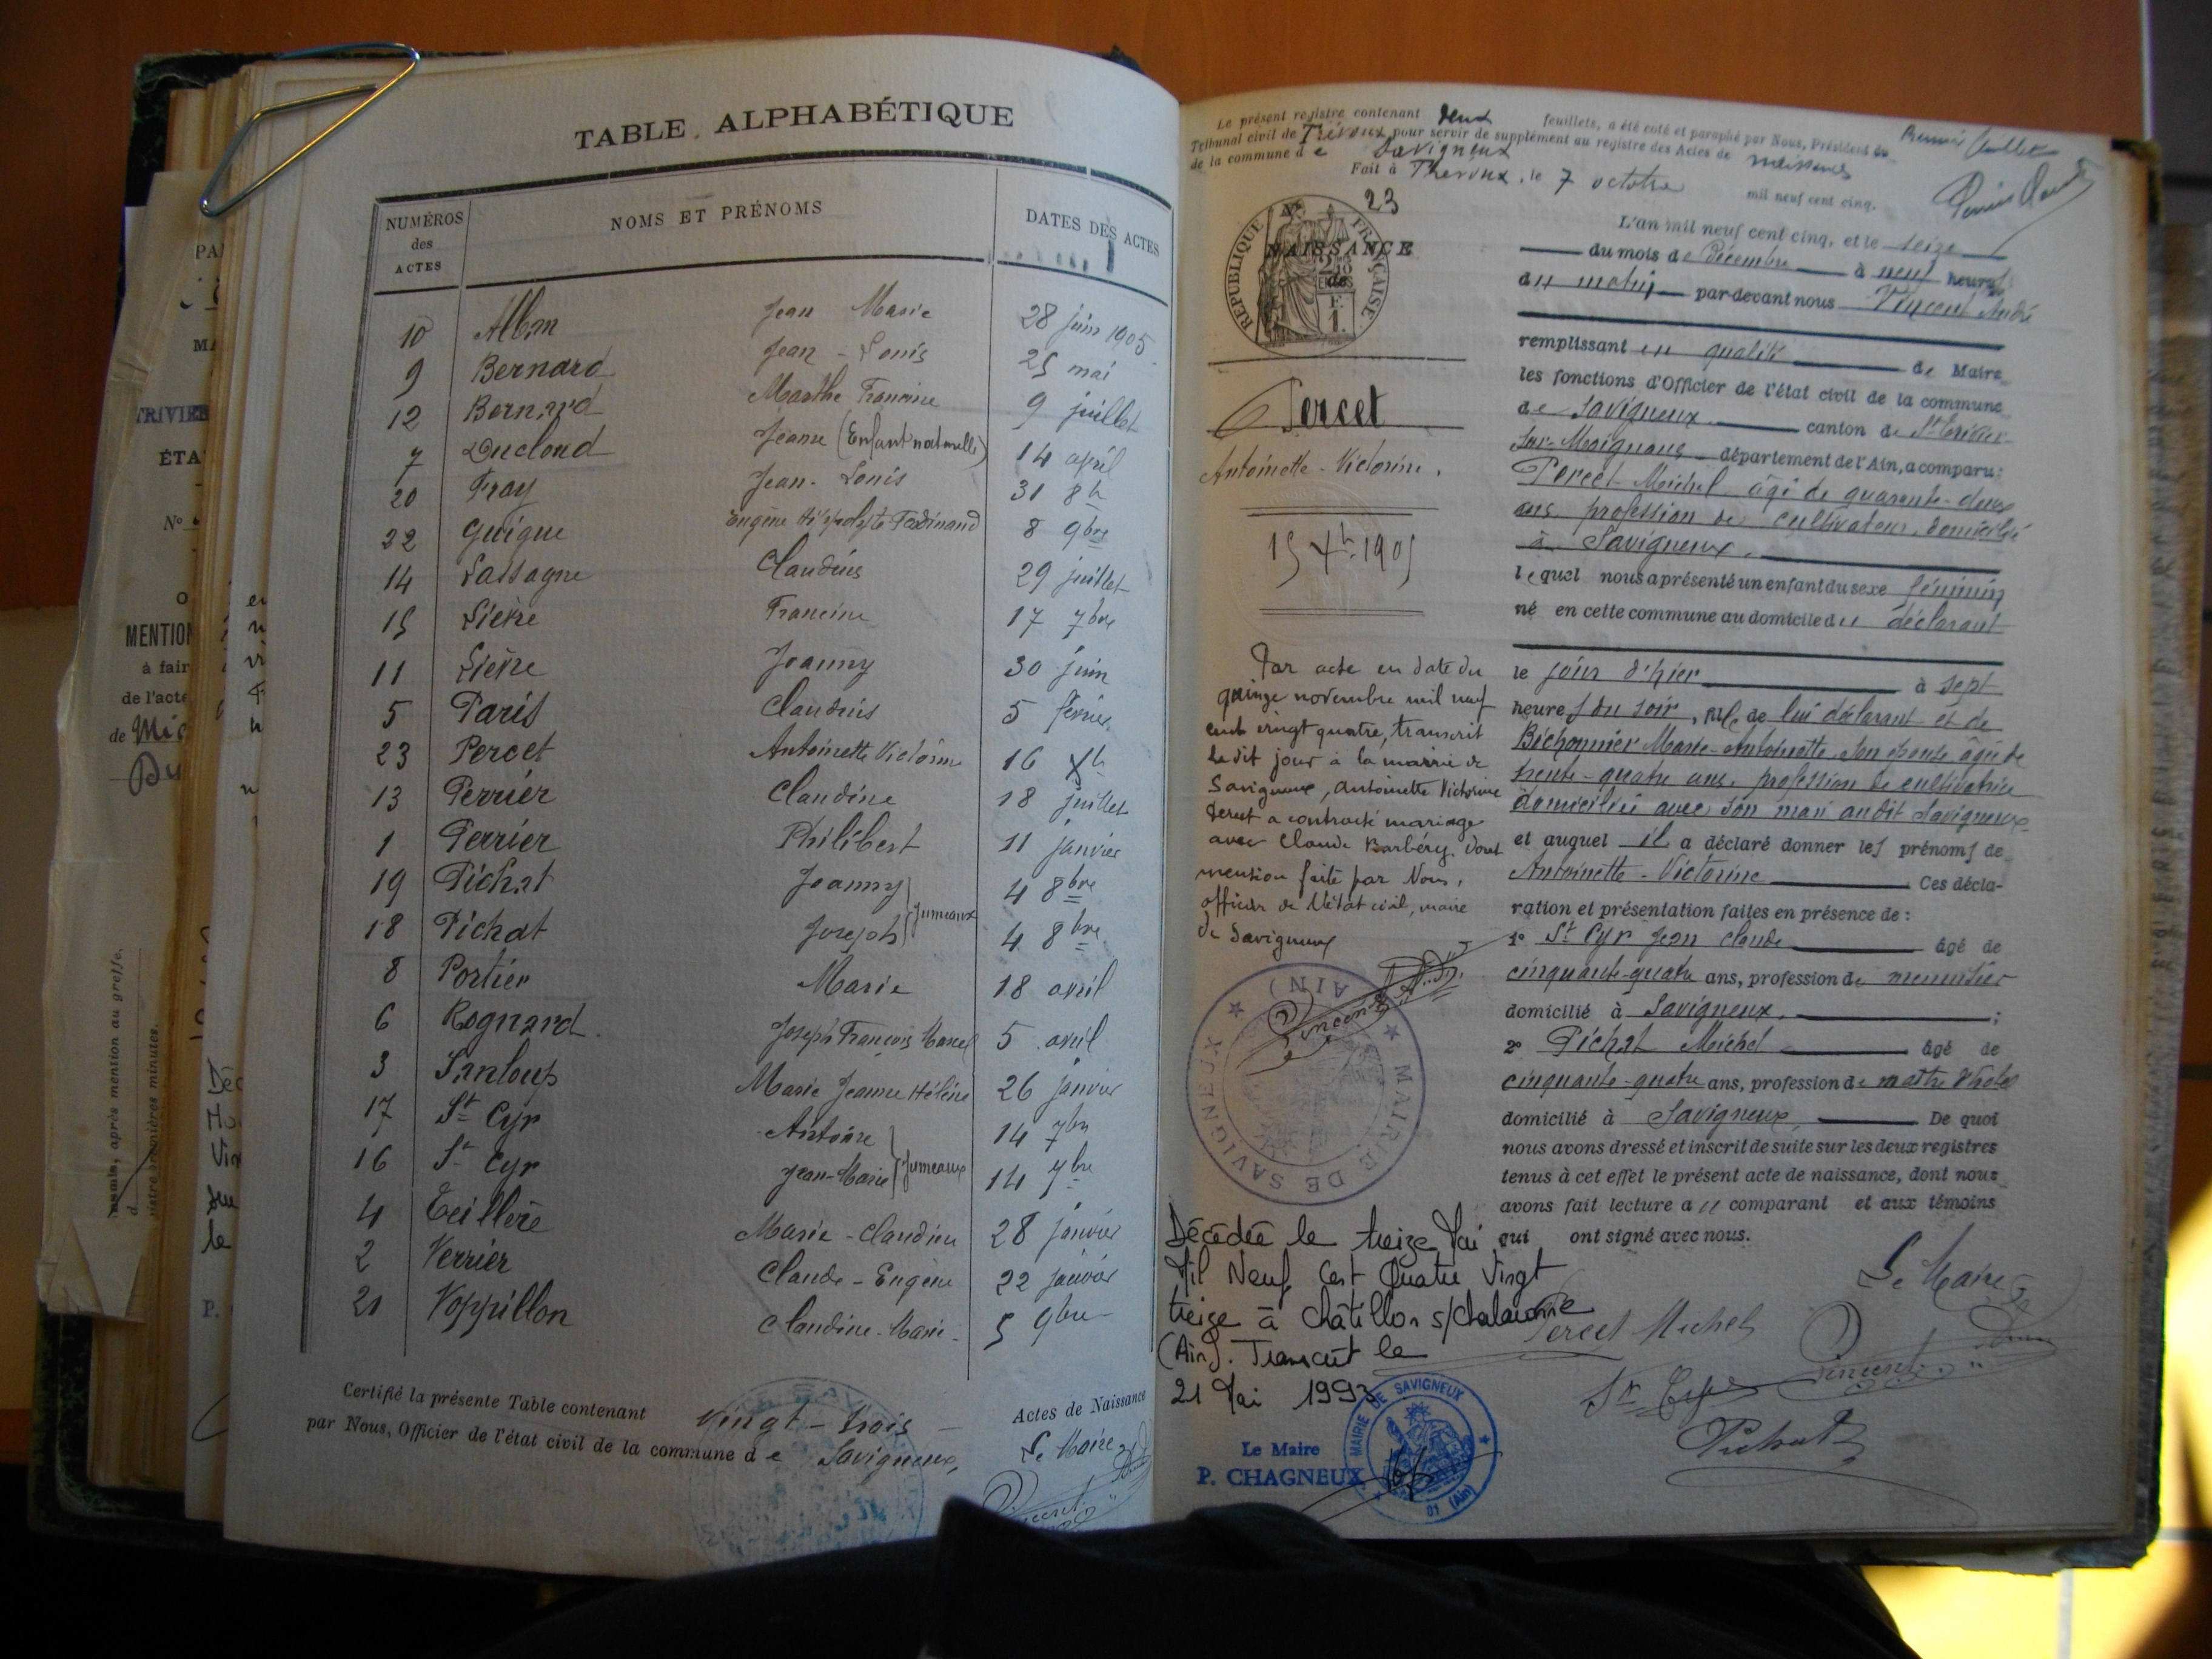 TABLE ALPHABÉTIQUE
NUMÉROS des ACTES
NOMS ET PRÉNOMS
DATES DES ACTES
10 Alban Jean Marie 28 juin 1905
9 Bernard Jean-Louis 25 mai
12 Bernard Marthe Francine 9 juillet
7 Ducloud Jeanne (Enfant naturelle) 14 avril
20 Fray Jean-Louis 31 8b
22 Guigue Eugène Hippolyte Ferdinand 8 9bre
14 Lassagne Claudius 29 juillet
15 Lièvre Francine 17 7bre
11 Lièvre Joanny 30 juin
5 Paris Claudius 5 février
23 Percet Antoinette Victorine 16 Xb
13 Perrier Claudine 18 juillet
1 Perrier Philibert 11 janvier
19 Pichat Joanny 4 8bre
jumeaux
18 Pichat Joseph 4 8bre
8 Portier Marie 18 avril
6 Rognard Joseph François Marcel 5 avril
3 Sanloup Marie Jeanne Hélène 26 janvier
17 St Cyr Antoine 14 7bre
jumeaux
16 St Cyr Jean-Marie 14 7bre
4 Teillère Marie-Claudine 28 janvier
2 Verrier Claude-Eugène 22 janvier
21 Voppillon Claudine-Marie- 5 9bre
Certifié la présente Table contenant Vingt-trois Actes de Naissance
par Nous, Officier de l'état civil de la commune de Savigneux,
Le Maire
Vincent
PA
TRIVIER
ÉTA
No
MENTION
à fair
de l'acte
de Mic
après mention au greffe.
dernières minutes.
P.
Le présent registre contenant deux feuillets, a été coté et paraphé par Nous, Président du
Tribunal civil de Trévoux pour servir de supplément au registre des Actes de naissances
de la commune de Savigneux
Fait à Trévoux, le 7 octobre mil neuf cent cinq.
Premier feuillet
23
RÉPUBLIQUE FRANÇAISE
NAISSANCE
de
Percet
Antoinette-Victorine.
15 Xb 1905
Par acte en date du
quinze novembre mil neuf
cent vingt quatre, transcrit
le dit jour à la mairie de
Savigneux, Antoinette Victorine
Percet a contracté mariage
avec Claude Barbéry. Dont
mention faite par Nous,
officier de l'état civil, maire
de Savigneux
Vincent
MAIRIE DE SAVIGNEUX (AIN)
Décédée le treize Mai
Mil Neuf Cent Quatre Vingt
treize à Châtillon s/Chalaronne
(Ain). Transcrit le
21 Mai 1993
Le Maire
P. CHAGNEUX
MAIRIE DE SAVIGNEUX
01 (Ain)
L'an mil neuf cent cinq, et le seize
du mois de Décembre à neuf heures
du matin par-devant nous Vincent André
remplissant en qualité de Maire
les fonctions d'Officier de l'état civil de la commune
de Savigneux canton de St Trivier
sur-Moignans département de l'Ain, a comparu:
Percet Michel âgé de quarante-deux
ans, profession de cultivateur, domicilié
à Savigneux,
lequel nous a présenté un enfant du sexe féminin
né en cette commune au domicile du déclarant
le jour d'hier à sept
heures du soir, fille de lui déclarant et de
Bichonnier Marie-Antoinette son épouse âgée de
trente-quatre ans, profession de cultivatrice
domiciliée avec son mari audit Savigneux
et auquel il a déclaré donner les prénoms de
Antoinette-Victorine Ces décla-
ration et présentation faites en présence de:
1º St Cyr Jean Claude âgé de
cinquante-quatre ans, profession de menuisier
domicilié à Savigneux,;
2º Pichat Michel âgé de
cinquante-quatre ans, profession de maître d'hôtel
domicilié à Savigneux, De quoi
nous avons dressé et inscrit de suite sur les deux registres
tenus à cet effet le présent acte de naissance, dont nous
avons fait lecture au comparant et aux témoins
qui ont signé avec nous.
Le Maire
Percet Michel
Vincent
St Cyr
Pichat